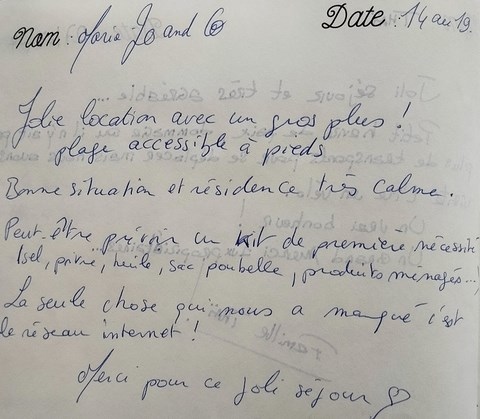 Nom : Maria Jo and Co
Date : 14 au 19.
Jolie location avec un gros plus !
plage accessible à pieds
Bonne situation et résidence très calme.
Peut être prévoir un kit de première nécéssité
(sel, poivre, huile, sac poubelle, produits menagés...)
La seule chose qui nous a manqué c'est
le réseau internet !
Merci pour ce joli séjour ♡